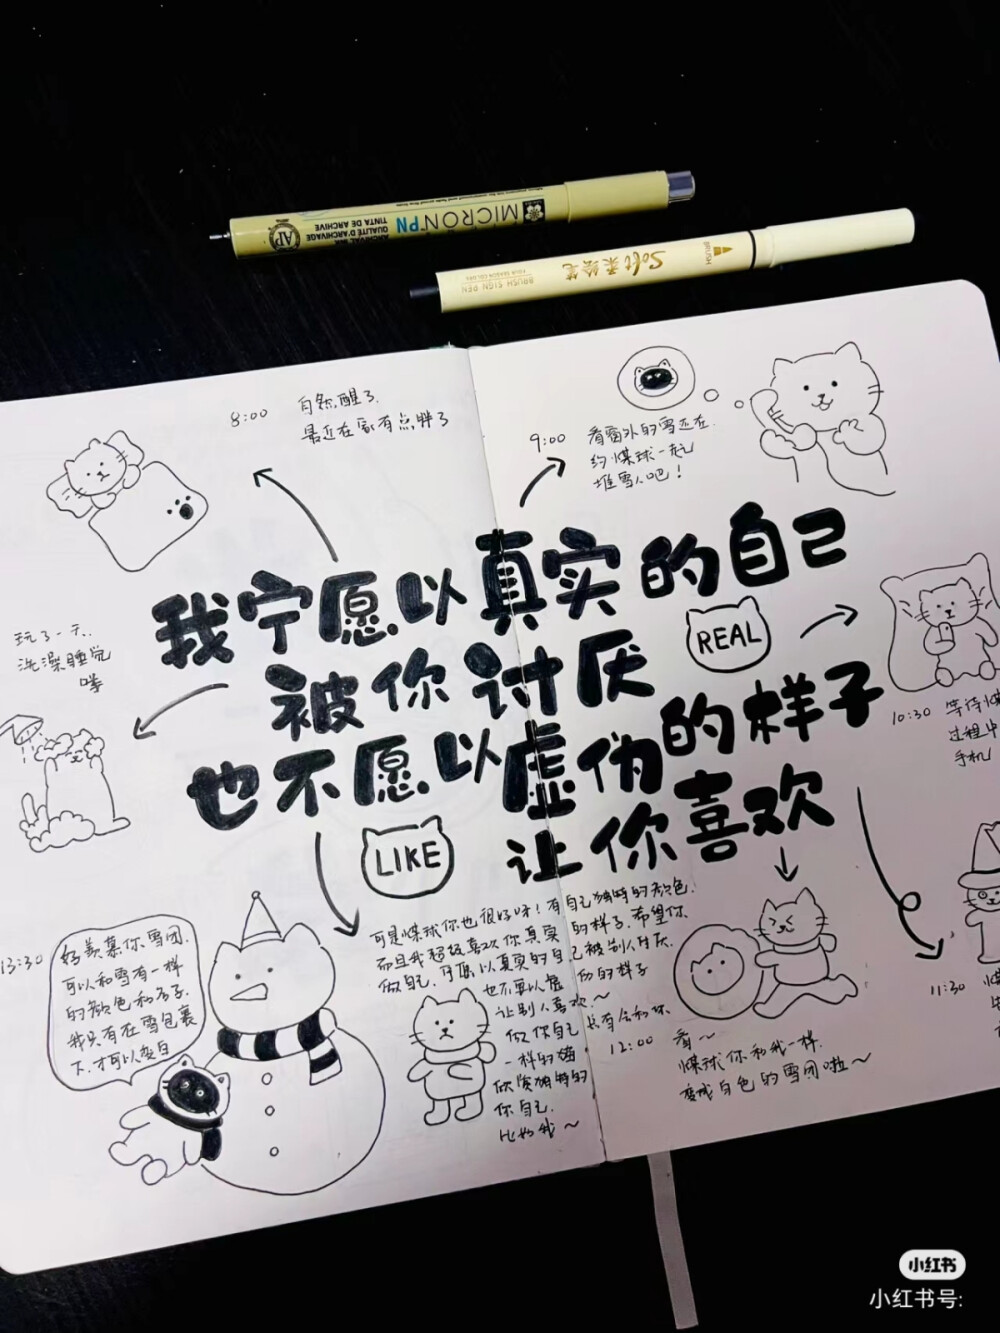 MICRON PN
ARCHIVAL INK
QUALITÉ D'ARCHIVAGE
TINTA DE ARCHIVE
AP
BRUSH
Soft 柔绘笔
BRUSH SIGN PEN
8:00 自然醒了.
最近在家有点胖了
9:00 看窗外的雪还在.
约煤球一起
堆雪人吧!
我宁愿以真实的自己
被你讨厌
REAL
也不愿以虚伪的样子
让你喜欢
LIKE
玩了一天.
洗澡睡觉
咪
10:30 等待
过程中
手机
11:30
12:00 看~
煤球你和我一样.
变成白色的雪团啦~
13:30 好羡慕你雪团.
可以和雪有一样
的颜色和样子.
我只有在雪包裹
下.才可以变白
可是煤球你也很好呀!有自己独特的颜色.
而且我超级喜欢你真实的样子.希望你
做自己.宁愿以真实的自己被别人讨厌.
也不要以虚伪的样子
让别人喜欢~
做你自己
一样的猫
你独特的
你自己.
比如我~
小红书
小红书号: